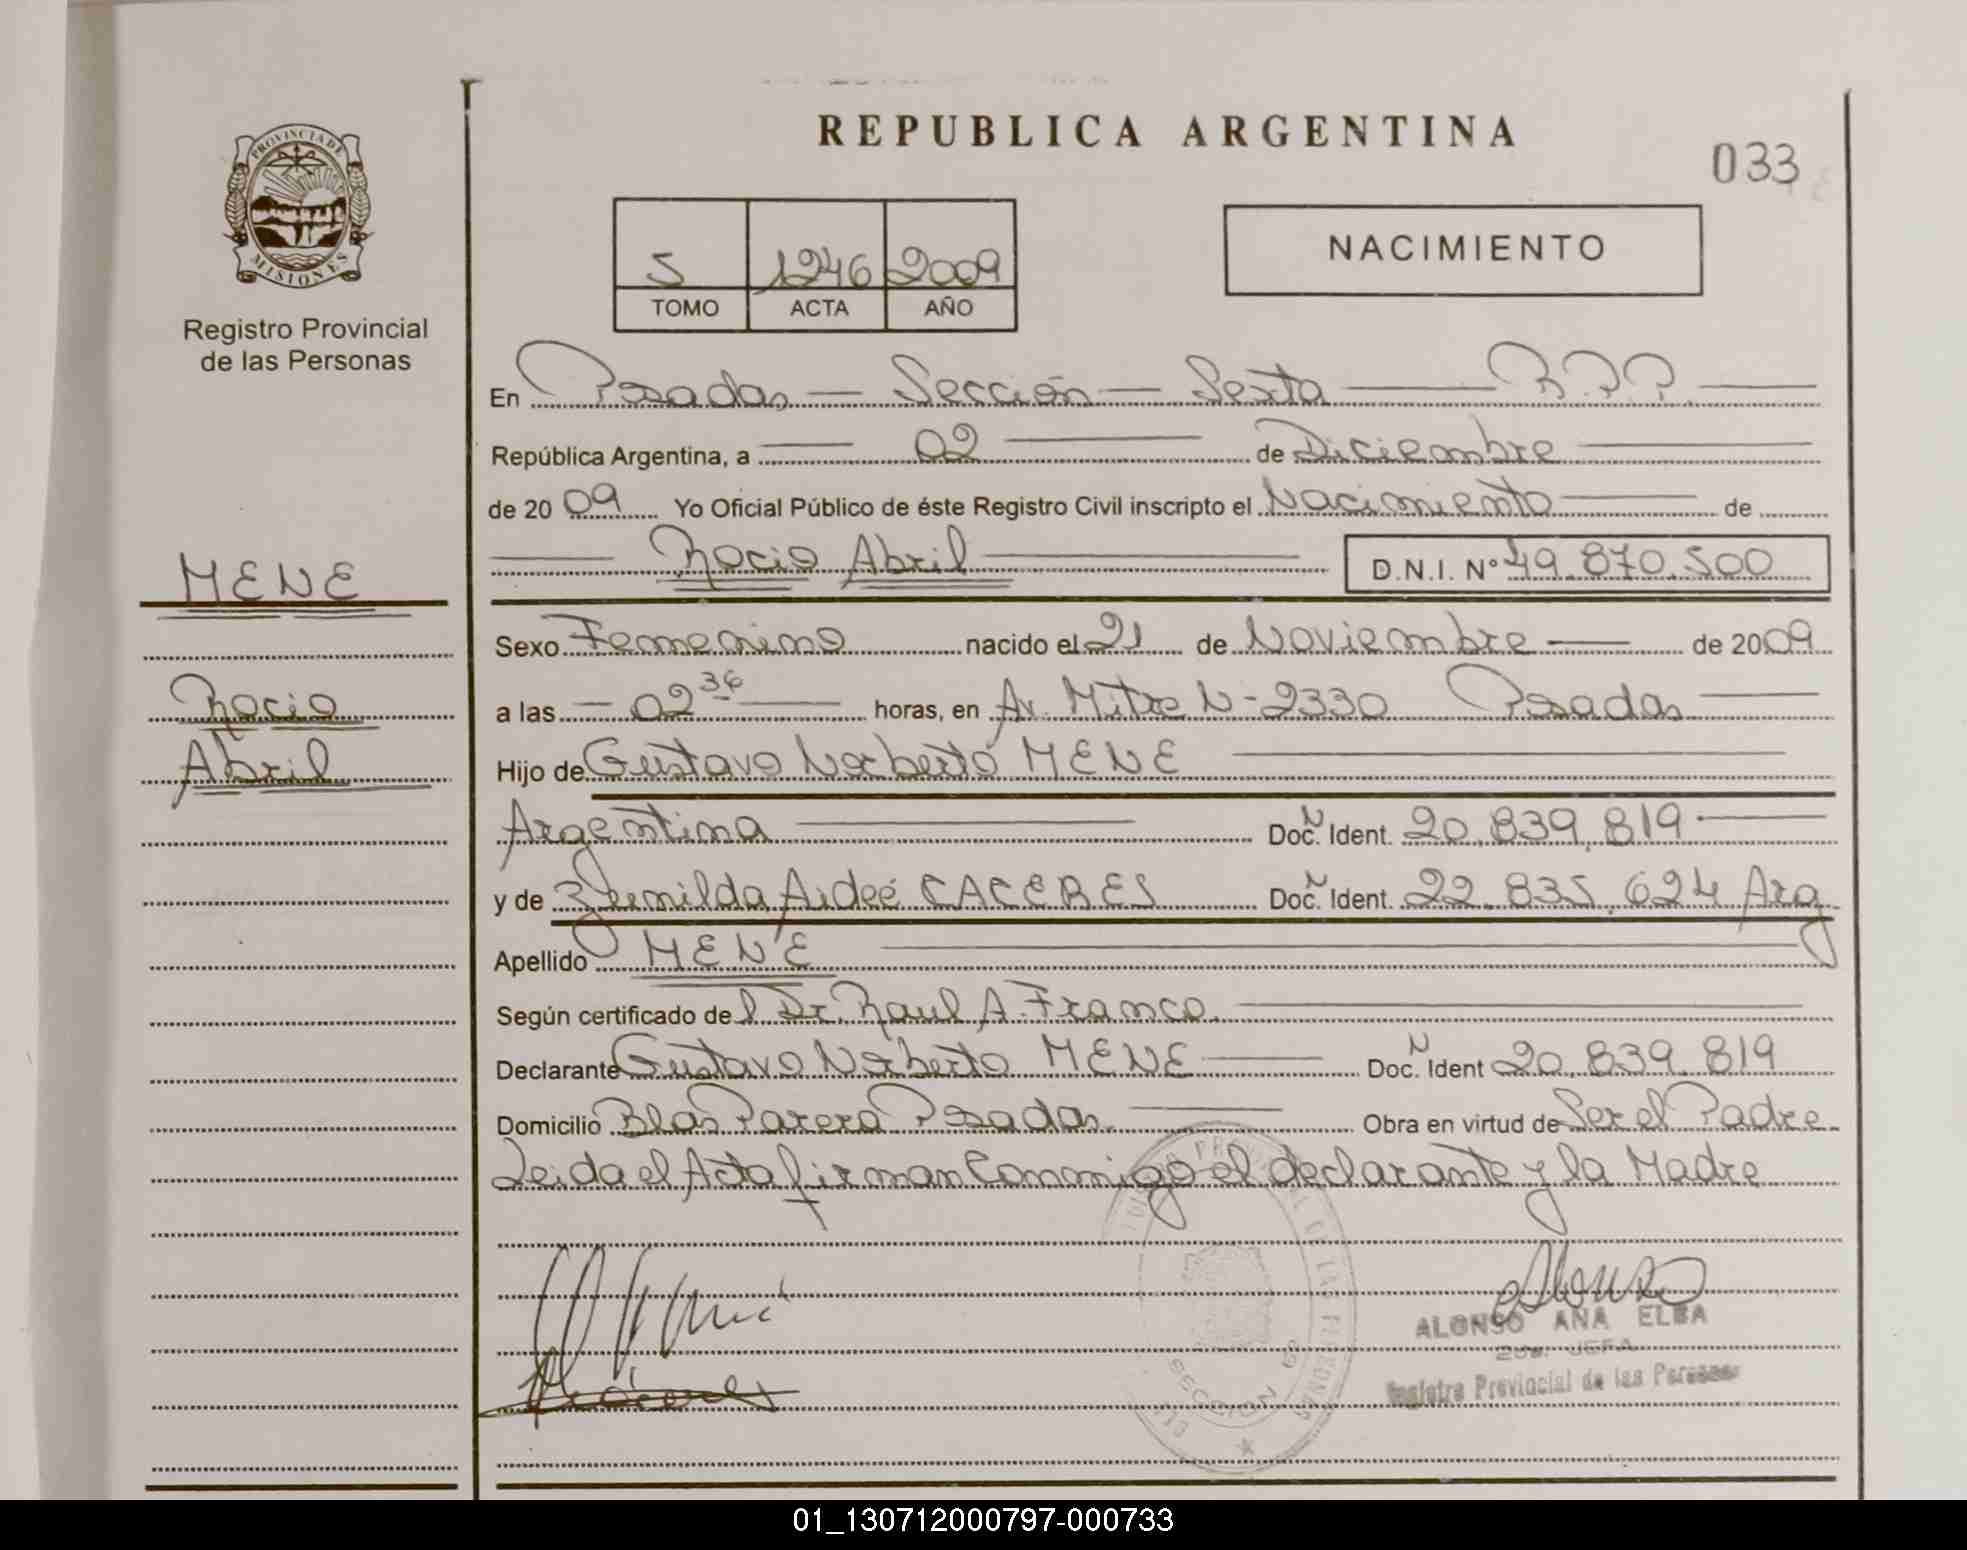 REPUBLICA ARGENTINA
033
PROVINCIA DE
MISIONES
Registro Provincial
de las Personas
5 1246 2009
TOMO ACTA AÑO
NACIMIENTO
En Posadas — Sección — Sexta — R.P.P. —
República Argentina, a — 02 — de Diciembre —
de 2009 Yo Oficial Público de éste Registro Civil inscripto el Nacimiento — de
— Rocio Abril — D.N.I. N° 49.870.500
MENE
Rocio
Abril
Sexo Femenino nacido el 21 de Noviembre — de 2009
a las — 02 36 — horas, en Av. Mitre N-2330 Posadas —
Hijo de Gustavo Norberto MENE —
Argentina — Doc. N Ident. 20.839.819 —
y de Zumilda Aideé CACERES Doc. N Ident. 22.835.624 Arg
Apellido MENE —
Según certificado del Dr. Raul A. Franco. —
Declarante Gustavo Norberto MENE — Doc. N Ident 20.839.819
Domicilio Blas Parera Posadas — Obra en virtud de Ser el Padre
Leida el Acta firman Conmigo el declarante y la Madre
ALONSO ANA ELBA
JEFA
Registro Provincial de las Personas
01_130712000797-000733